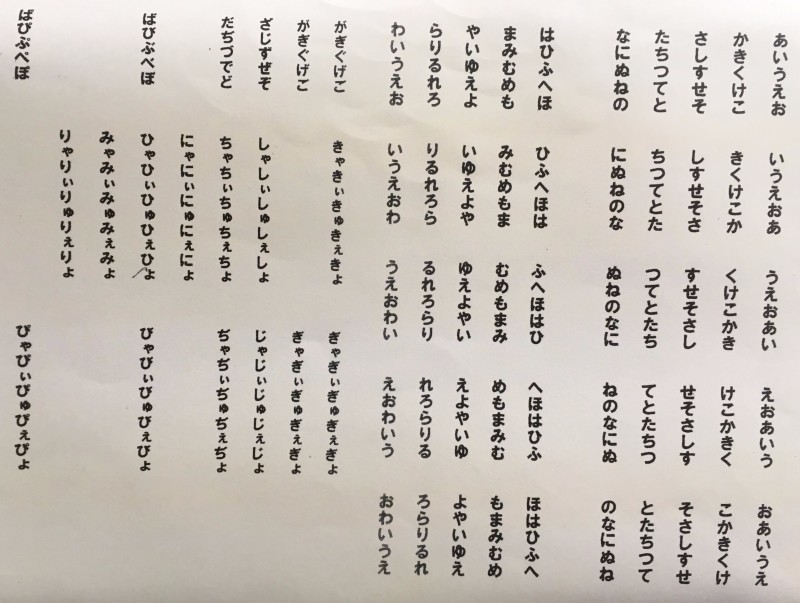 あいうえお いうえおあ うえおあい えおあいう おあいうえ
かきくけこ きくけこか くけこかき けこかきく こかきくけ
さしすせそ しすせそさ すせそさし せそさしす そさしすせ
たちつてと ちつてとた つてとたち てとたちつ とたちつて
なにぬねの にぬねのな ぬねのなに ねのなにぬ のなにぬね
はひふへほ ひふへほは ふへほはひ へほはひふ ほはひふへ
まみむめも みむめもま むめもまみ めもまみむ もまみむめ
やいゆえよ いゆえよや ゆえよやい えよやいゆ よやいゆえ
らりるれろ りるれろら るれろらり れろらりる ろらりるれ
わいうえお いうえおわ うえおわい えおわいう おわいうえ
がぎぐげご きゃきぃきゅきぇきょ ぎゃぎぃぎゅぎぇぎょ
がぎぐげご ぎゃぎぃぎゅぎぇぎょ
ざじずぜぞ しゃしぃしゅしぇしょ じゃじぃじゅじぇじょ
だぢづでど ちゃちぃちゅちぇちょ ぢゃぢぃぢゅぢぇぢょ
にゃにぃにゅにぇにょ
ばびぶべぼ ひゃひぃひゅひぇひょ びゃびぃびゅびぇびょ
みゃみぃみゅみぇみょ
りゃりぃりゅりぇりょ
ぱぴぷぺぽ ぴゃぴぃぴゅぴぇぴょ